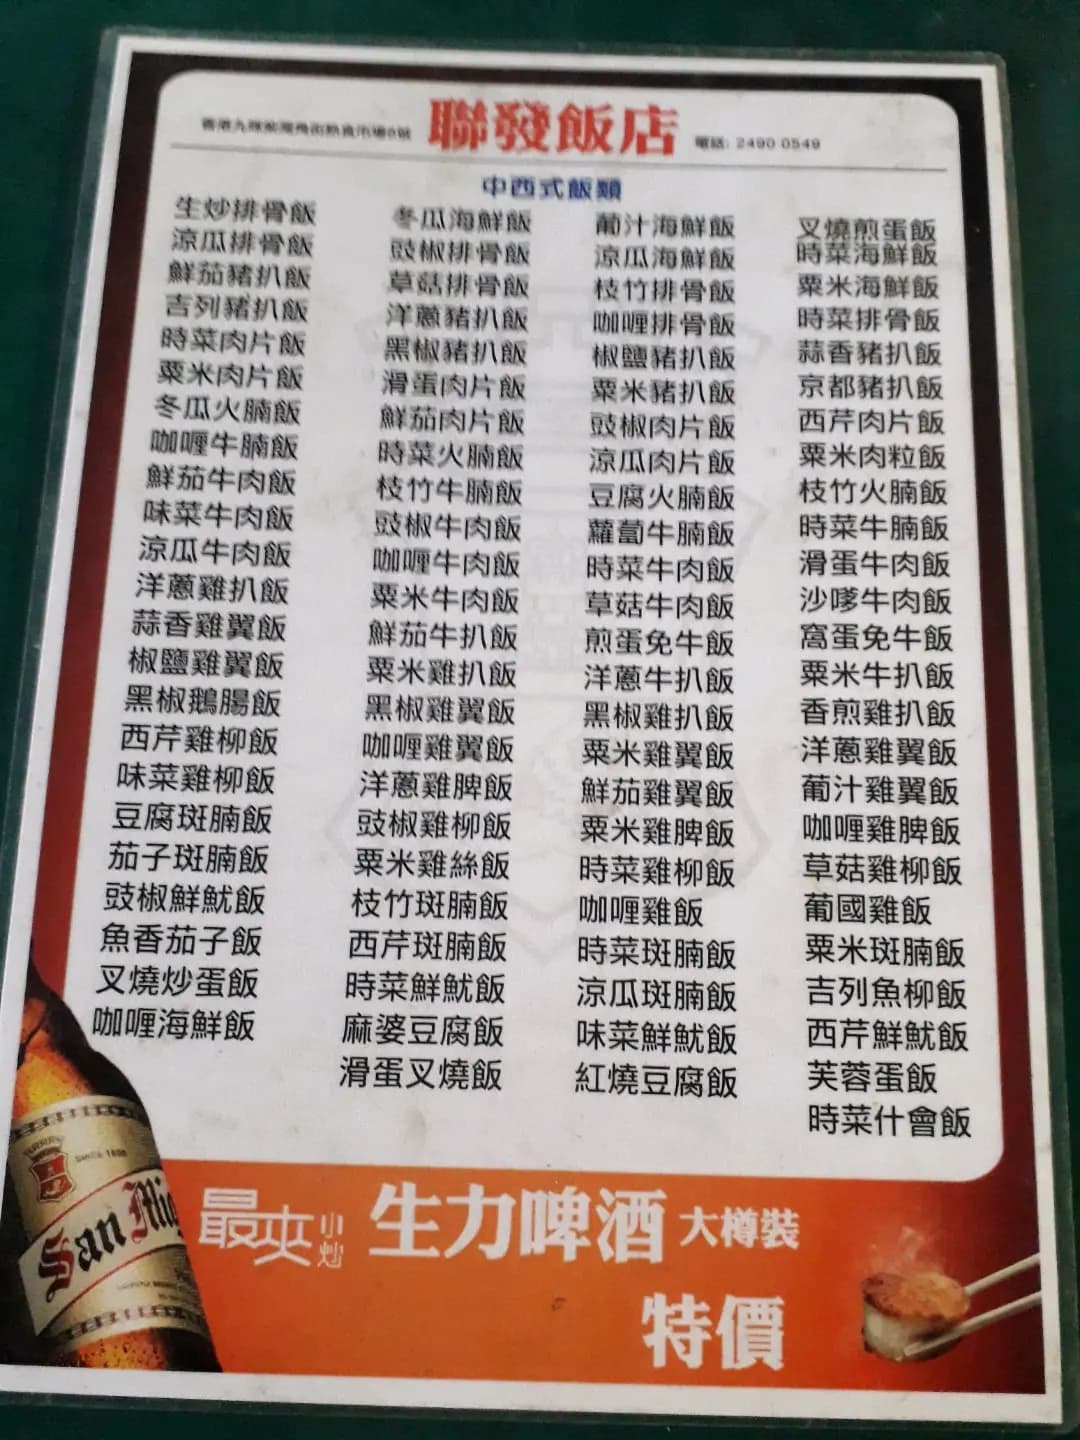 聯發飯店
香港九隊柴灣角街熟食市場8號
電話: 2490 0549
中西式飯類
生炒排骨飯
涼瓜排骨飯
鮮茄豬扒飯
吉列豬扒飯
時菜肉片飯
粟米肉片飯
冬瓜火腩飯
咖喱牛腩飯
鮮茄牛肉飯
味菜牛肉飯
涼瓜牛肉飯
洋蔥雞扒飯
蒜香雞翼飯
椒鹽雞翼飯
黑椒鵝腸飯
西芹雞柳飯
味菜雞柳飯
豆腐斑腩飯
茄子斑腩飯
豉椒鮮魷飯
魚香茄子飯
叉燒炒蛋飯
咖喱海鮮飯
冬瓜海鮮飯
豉椒排骨飯
草菇排骨飯
洋蔥豬扒飯
黑椒豬扒飯
滑蛋肉片飯
鮮茄肉片飯
時菜火腩飯
枝竹牛腩飯
豉椒牛肉飯
咖喱牛肉飯
粟米牛肉飯
鮮茄牛扒飯
粟米雞扒飯
黑椒雞翼飯
咖喱雞翼飯
洋蔥雞脾飯
豉椒雞柳飯
粟米雞絲飯
枝竹斑腩飯
西芹斑腩飯
時菜鮮魷飯
麻婆豆腐飯
滑蛋叉燒飯
葡汁海鮮飯
涼瓜海鮮飯
枝竹排骨飯
咖喱排骨飯
椒鹽豬扒飯
粟米豬扒飯
豉椒肉片飯
涼瓜肉片飯
豆腐火腩飯
蘿蔔牛腩飯
時菜牛肉飯
草菇牛肉飯
煎蛋免牛飯
洋蔥牛扒飯
黑椒雞扒飯
粟米雞翼飯
鮮茄雞翼飯
粟米雞脾飯
時菜雞柳飯
咖喱雞飯
時菜斑腩飯
涼瓜斑腩飯
味菜鮮魷飯
紅燒豆腐飯
叉燒煎蛋飯
時菜海鮮飯
粟米海鮮飯
時菜排骨飯
蒜香豬扒飯
京都豬扒飯
西芹肉片飯
粟米肉粒飯
枝竹火腩飯
時菜牛腩飯
滑蛋牛肉飯
沙嗲牛肉飯
窩蛋免牛飯
粟米牛扒飯
香煎雞扒飯
洋蔥雞翼飯
葡汁雞翼飯
咖喱雞脾飯
草菇雞柳飯
葡國雞飯
粟米斑腩飯
吉列魚柳飯
西芹鮮魷飯
芙蓉蛋飯
時菜什會飯
San Mig
SINCE 1890
最夾小炒
生力啤酒 大樽裝
特價